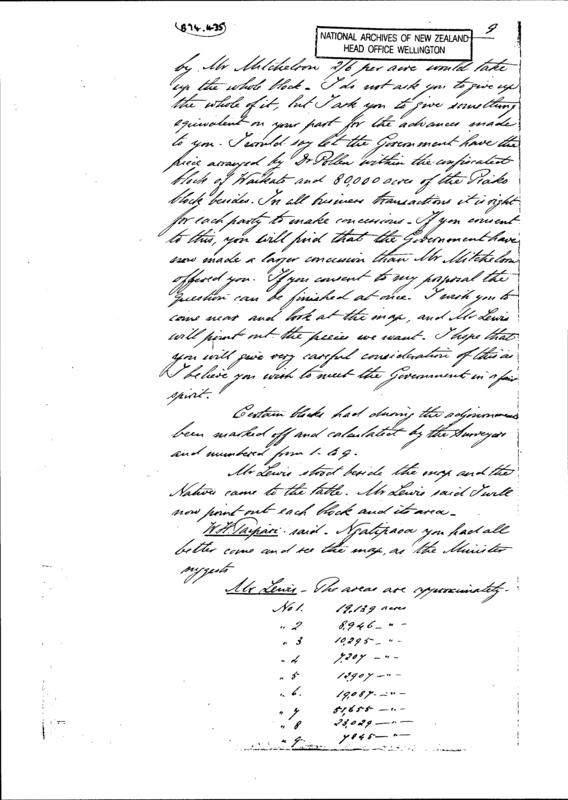 (874.435)
NATIONAL ARCHIVES OF NEW ZEALAND
HEAD OFFICE WELLINGTON
9
by Mr Mitchelson 2/6 per acre would take
up the whole block - I do not ask you to give up
the whole of it, but I ask you to give something
equivalent on your part for the advances made
to you. I would say let the Government have the
piece arranged by Dr Pollen within the confiscated
block of Waikato and 80,000 acres of the Piako
block besides. In all business transactions it is right
for each party to make concessions. If you consent
to this, you will find that the Government have
now made a larger concession than Mr Mitchelson
offered you. If you consent to my proposal the
question can be finished at once. I wish you to
come near and look at the map, and Mr Lewis
will point out the pieces we want. I hope that
you will give very careful consideration of this as
I believe you wish to meet the Government in a fair
spirit.
Certain blocks had during the adjournment
been marked off and calculated by the Surveyors
and numbered from 1. to 9.
Mr Lewis stood beside the map and the
Natives came to the table. Mr Lewis said I will
now point out each block and its area -
W. H. Taipari said - Ngatipaoa you had all
better come and see the map, as the Minister
suggests
Mr Lewis - The areas are approximately -
No 1. 19,139 acres
" 2 8,946 - " -
" 3 10,295 - " -
" 4 7,207 - " -
" 5 12,907 - " -
" 6. 19,087 - " -
" 7 51,655 - " -
" 8 23,029 - " -
" 9 7845 - " -